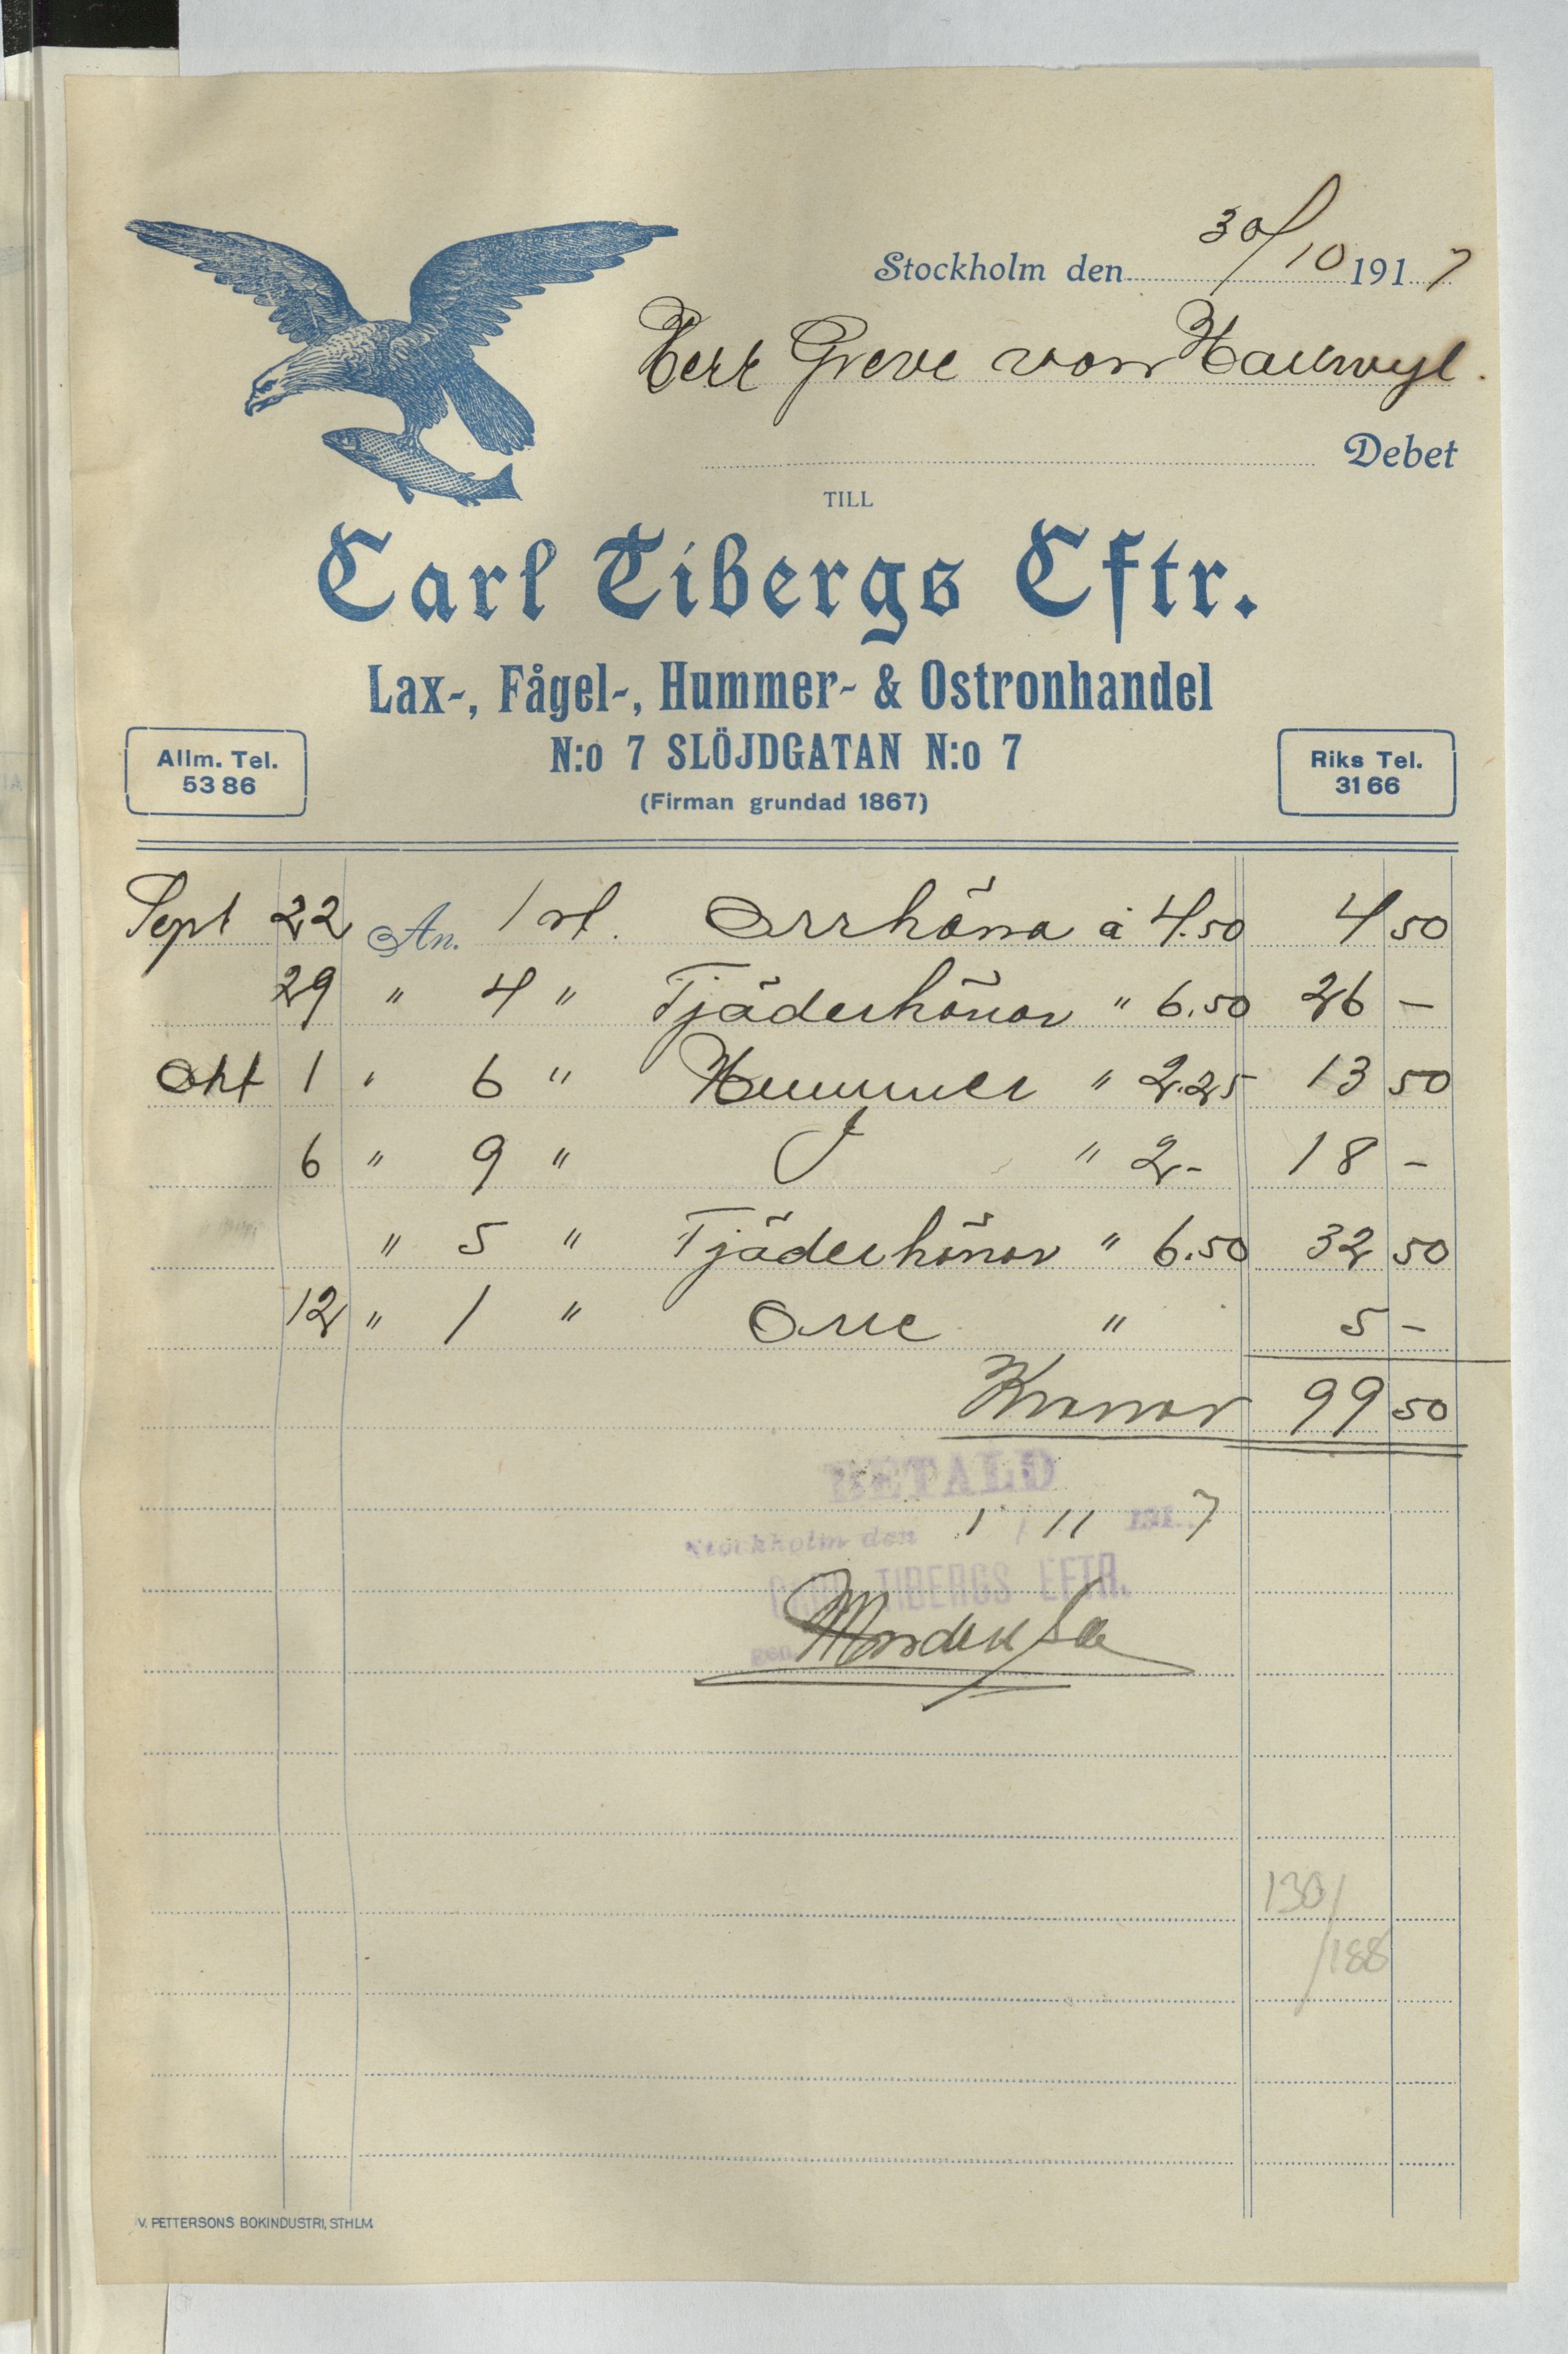 Stockholm den 30/10 1917
Herr Greve von Hallwyl.
Debet
TILL
Carl Tibergs Eftr.
Lax-, Fågel-, Hummer- & Ostronhandel
N:o 7 SLÖJDGATAN N:o 7
(Firman grundad 1867)
Allm. Tel.
53 86
Riks Tel.
31 66
Sept 22 An. 1 st. Orrhöna à 4.50 4 50
29 " 4 " Tjäderhönor " 6.50 26 -
Okt 1 " 6 " Hummer " 2.25 13 50
6 " 9 " " 2- 18 -
" 5 " Tjäderhönor " 6.50 32 50
12 " 1 " Orre " 5 -
Kronor 99 50
BETALD
Stockholm den 1/11 191 7
CARL TIBERGS EFTR.
gen
130/
/188
V. PETTERSONS BOKINDUSTRI, STHLM